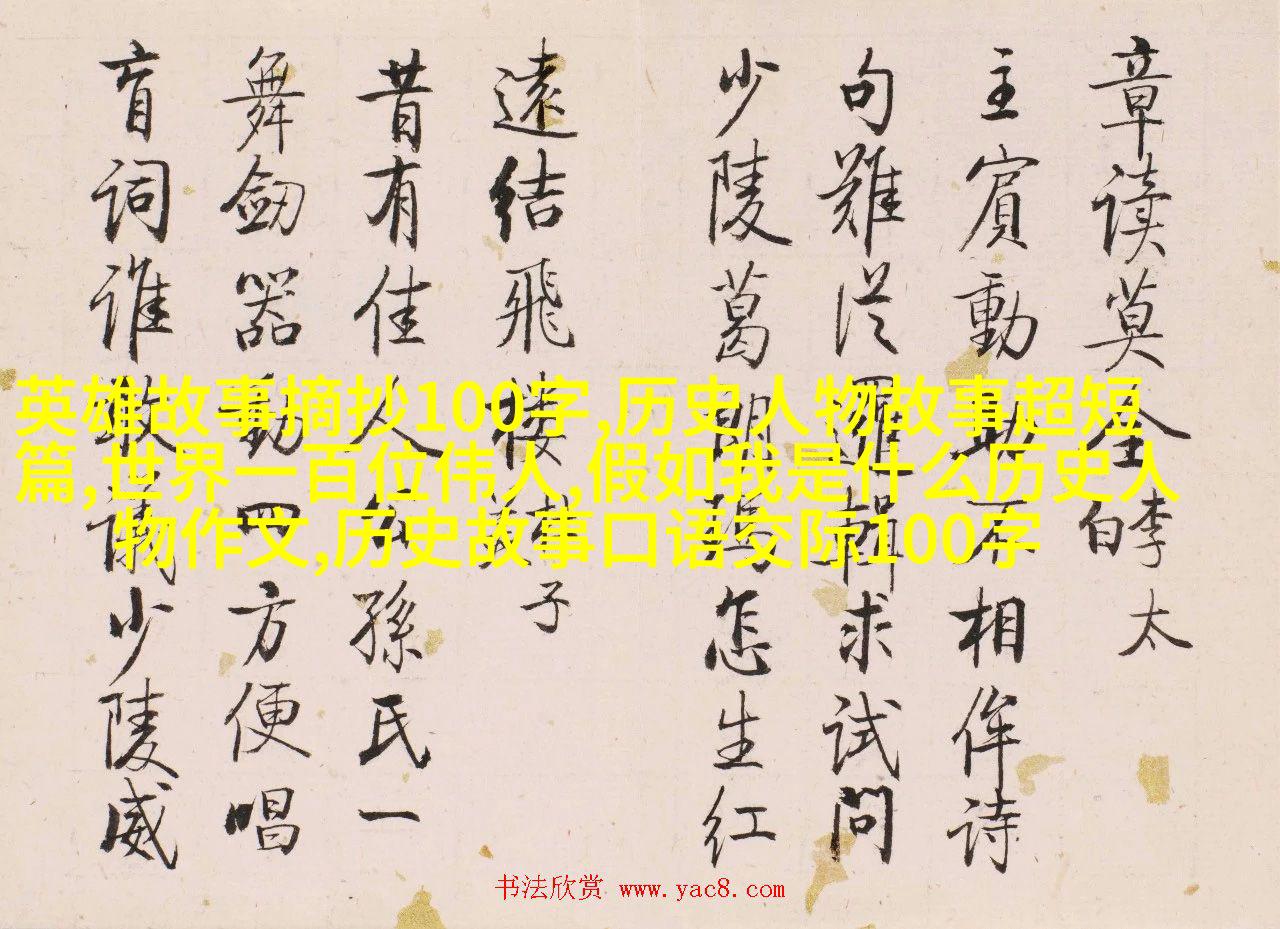 章读莫全李太白
主賓動助不相侔诗
句難從羅輯求试问
少陵葛朗瑪怎生红
遠结飛樓子
昔有佳人公孫氏一
舞劒器動四方便唱
盲词谁敢議少陵威
英雄故事摘抄100字,历史人物故事超短
篇,世界一百位伟人,假如我是什么历史人
物作文,历史故事口语交际100字
书法欣赏 www.yac8.com